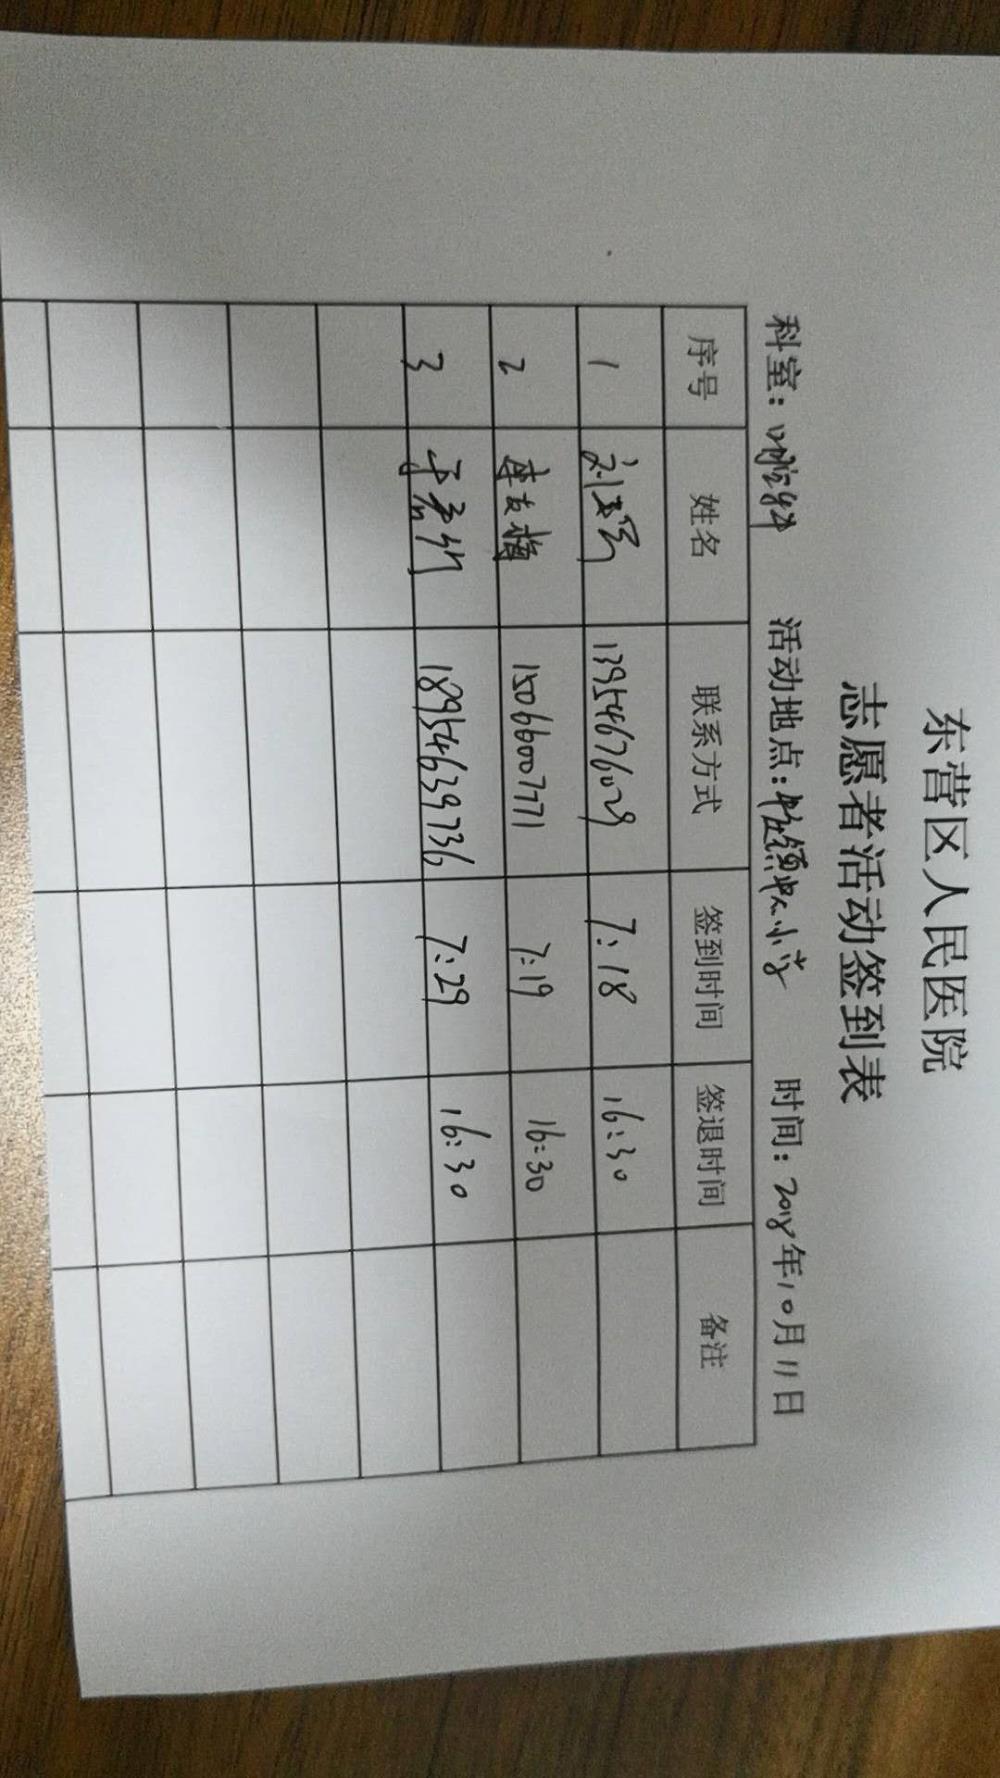 东营区人民医院
志愿者活动签到表
科室：口腔科 活动地点：牛庄镇中心小学 时间：2018年10月11日
序号 姓名 联系方式 签到时间 签退时间 备注
1 13954676029 7:18 16:30
2 李友梅 15066007771 7:19 16:30
3 18954639736 7:29 16:30